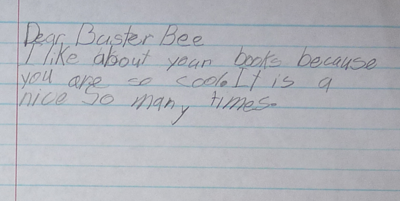 Dear Buster Bee
I like about your books because
you are so cool. It is a
nice so many times.